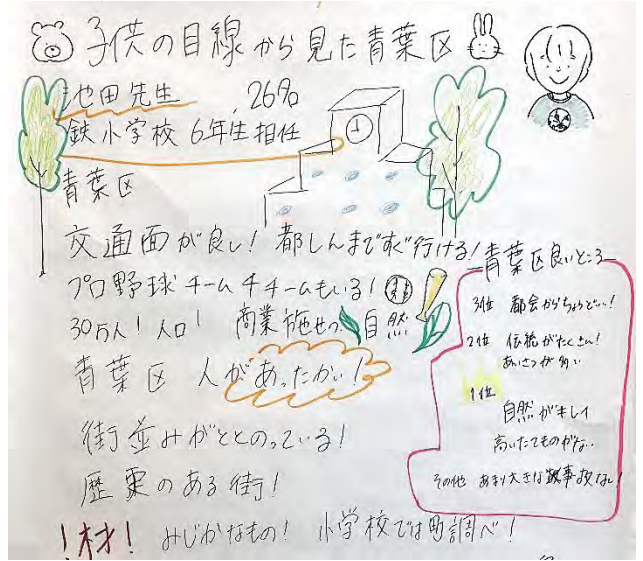 子供の目線から見た青葉区
池田先生 26%
鉄小学校 6年生担任
青葉区
交通面が良い！ 都しんまですぐ行ける！
プロ野球チーム チームもいる！
30万人！人口！ 商業施せつ 自然
青葉区 人があったかい！
街並みがととのっている！
歴史のある街！
！材！ みじかなもの！ 小学校では町調べ！
青葉区良いところ
3位 都会からちょうどいい！
2位 伝統がたくさん！
あいさつが多い
1位
自然がキレイ
高いたてものがない
その他 あまり大きな事故なし！